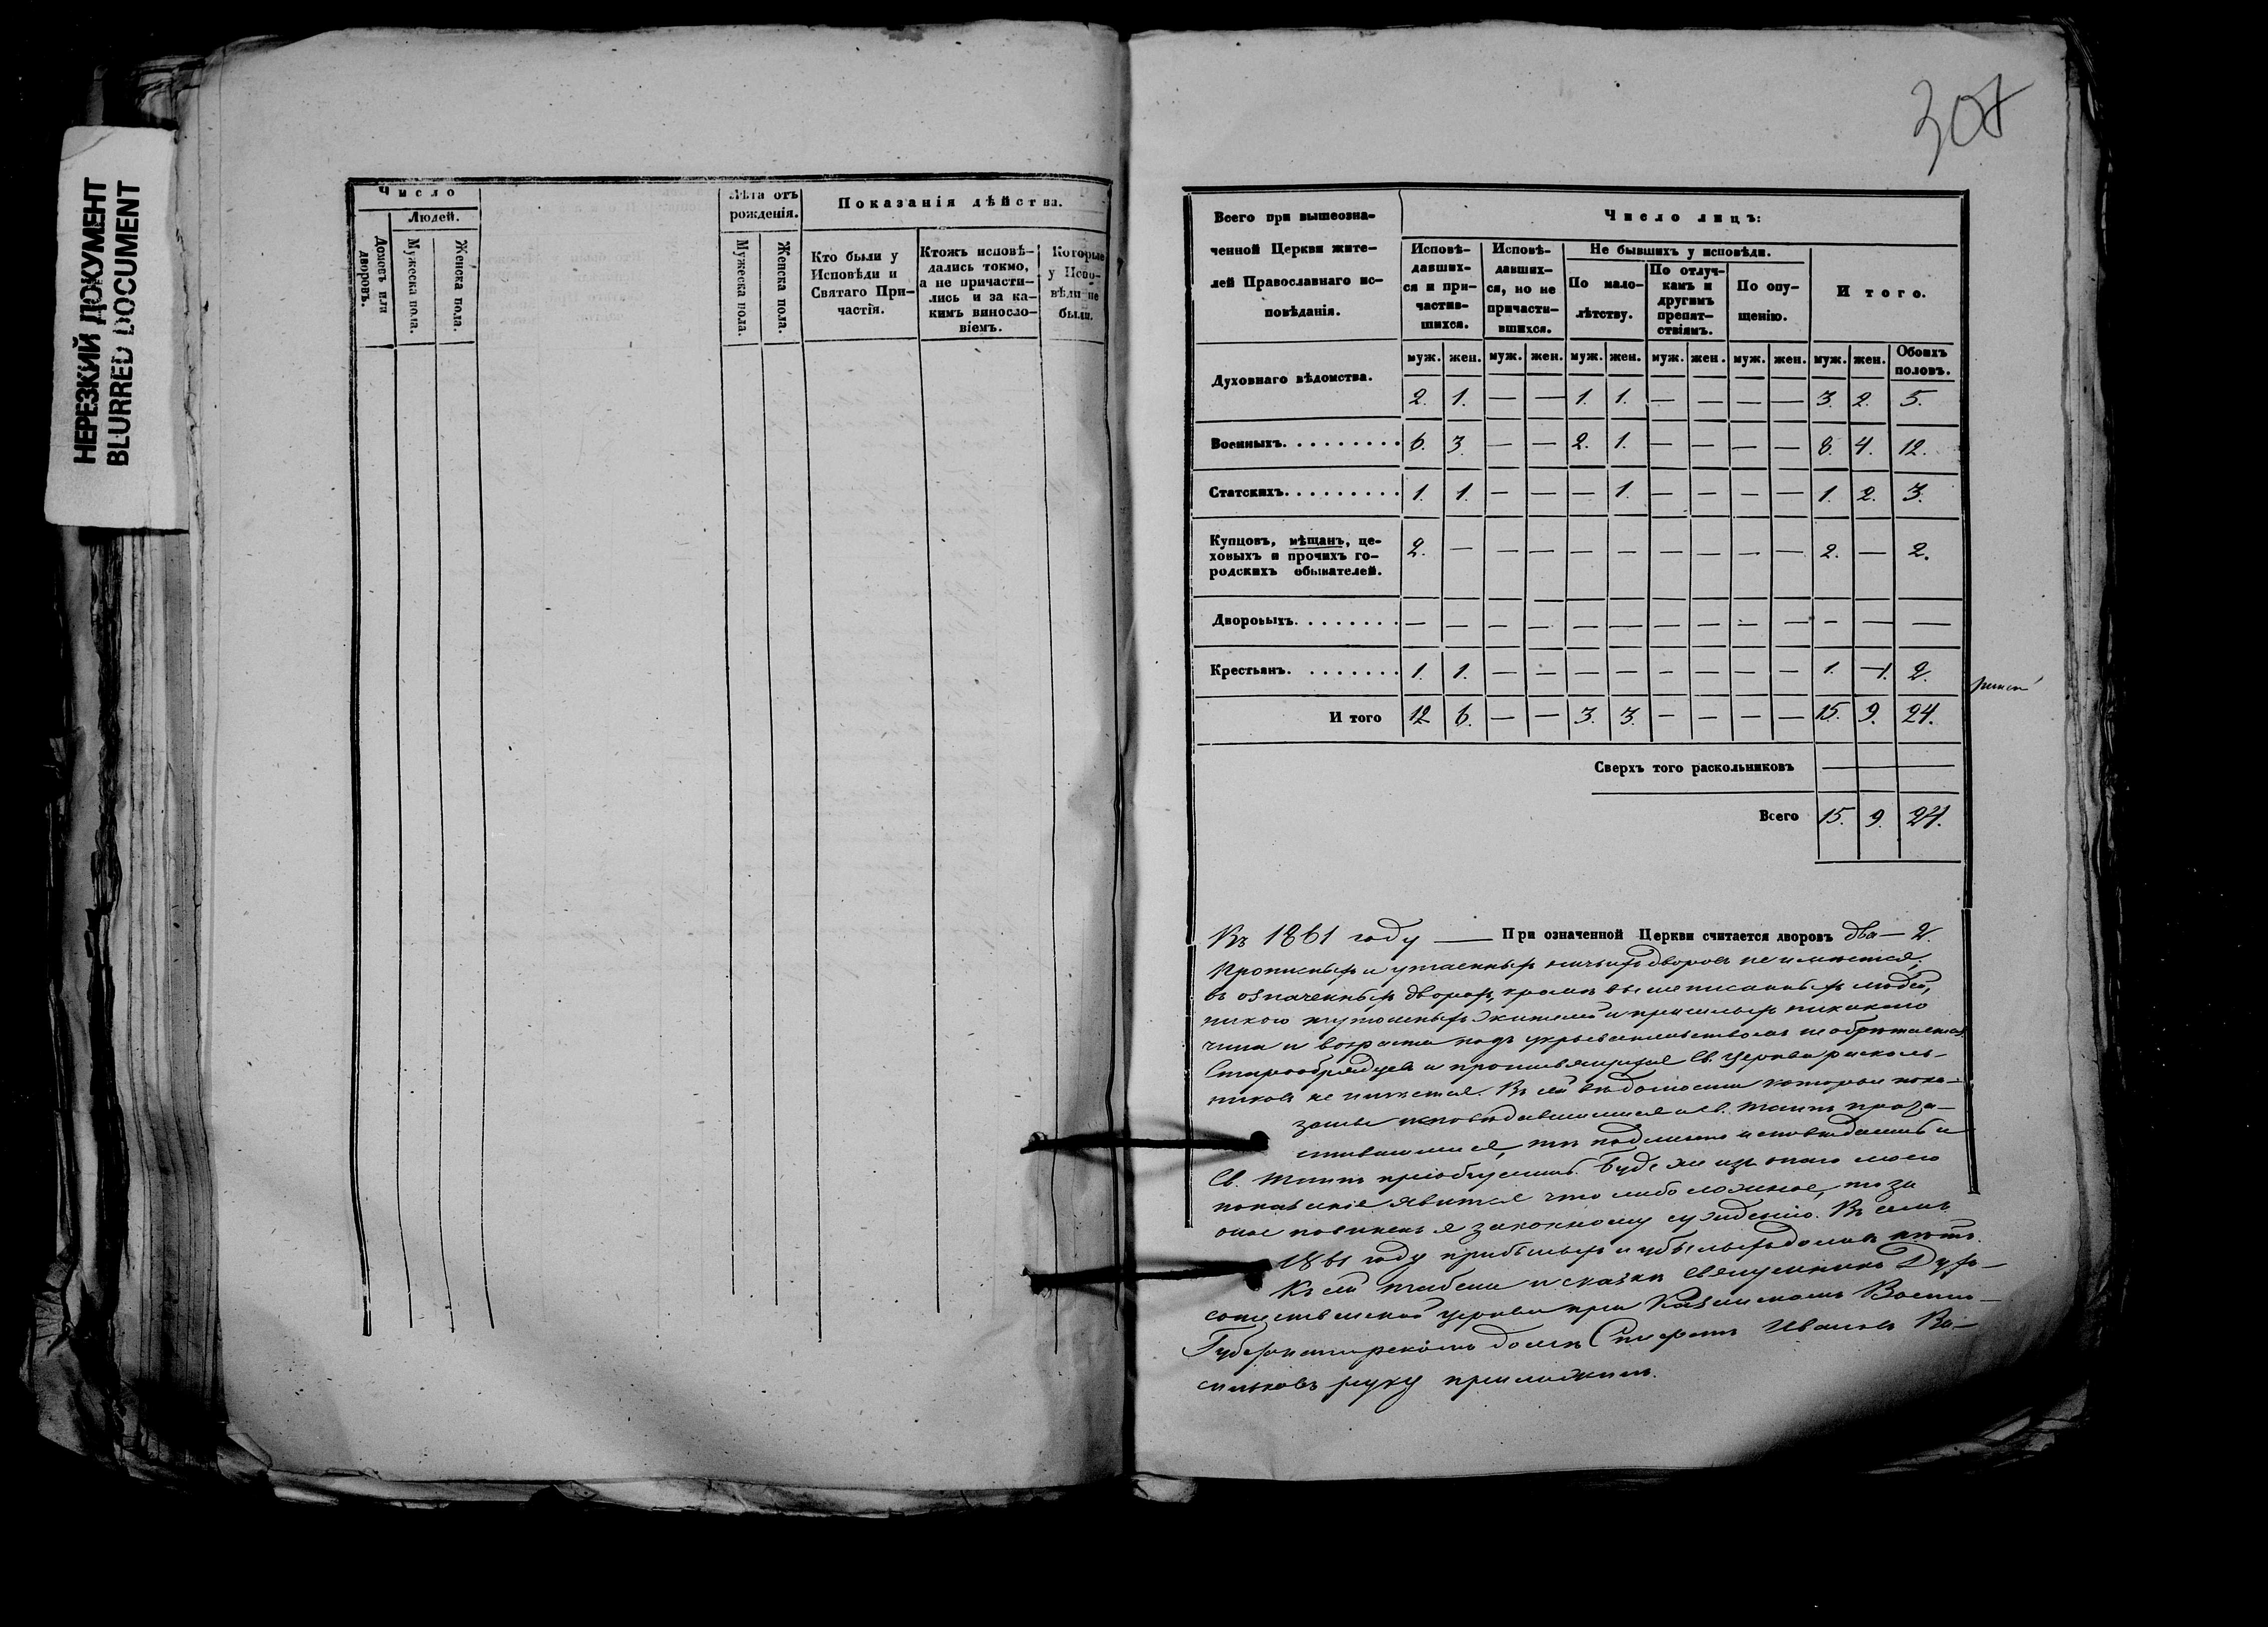 НЕРЕЗКИЙ ДОКУМЕНТ
BLURRED DOCUMENT
Число
Людей.
Домовъ или дворовъ.
Мужеска пола.
Женска пола.
Лѣта отъ рожденія.
Мужеска пола.
Женска пола.
Показанія дѣйства.
Кто были у Исповѣди и Святаго Причастія.
Ктожъ исповѣдались токмо, а не причастились и за какимъ винословіемъ.
Которые у Исповѣди не были.
Всего при вышеозна-
ченной Церкви жите-
лей Православнаго ис-
повѣданія.
Число лицъ:
Исповѣ-
давших-
ся и при-
частив-
шихся.
Исповѣ-
давших-
ся, но не
причасти-
вшихся.
Не бывшихъ у исповѣди.
По мало-
лѣтству.
По отлуч-
камъ и
другимъ
препят-
ствіямъ.
По опу-
щенію.
Итого.
муж. жен. муж. жен. муж. жен. муж. жен. муж. жен. муж. жен. Обоихъ половъ.
Духовнаго вѣдомства. 2. 1. — — 1. 1. — — — — 3. 2. 5.
Военныхъ. 6. 3. — — 2. 1. — — — — 8. 4. 12.
Статскихъ. 1. 1. — — — 1. — — — — 1. 2. 3.
Купцовъ, мѣщанъ, це-
ховыхъ и прочихъ го-
родскихъ обывателей. 2. — — — — — — — — — 2. — 2.
Дворовыхъ. — — — — — — — — — — — — —
Крестьянъ. 1. 1. — — — — — — — — 1. —1. 2.
Итого 12 6. — — 3. 3. — — — — 15. 9. 24.
Сверхъ того раскольниковъ — — —
Всего 15. 9. 24.
Въ 1861 году — При означенной Церкви считается дворовъ два — 2.
Прописныхъ и утаенныхъ ничьихъ дворовъ не имѣется,
въ означенныхъ дворахъ, кромѣ вышеписанныхъ людей,
никого тутошныхъ жителей и пришлыхъ никакого
чина и возраста подъ укрывательствомъ не обрѣтается.
Старообрядцевъ и противящихся Св. Церкви расколь-
никовъ не имѣется. Въ сей вѣдомости которые пока-
заны исповѣдавшимися и Св. Таинъ прича-
стившимися, тѣ подлинно исповѣданы и
Св. Таинъ пріобщены. Буде же изъ онаго моего
показанія явится что либо ложное, то за
оное повиненъ я законному сужденію. Въ семъ
1861 году прибылыхъ и убылыхъ домовъ нѣтъ.
Къ сей табели и сказкѣ священникъ Духо-
сошественской церкви при Казанскомъ Военно-
Губернаторскомъ домѣ Стефанъ Ивановъ Ва-
сильковъ руку приложилъ.